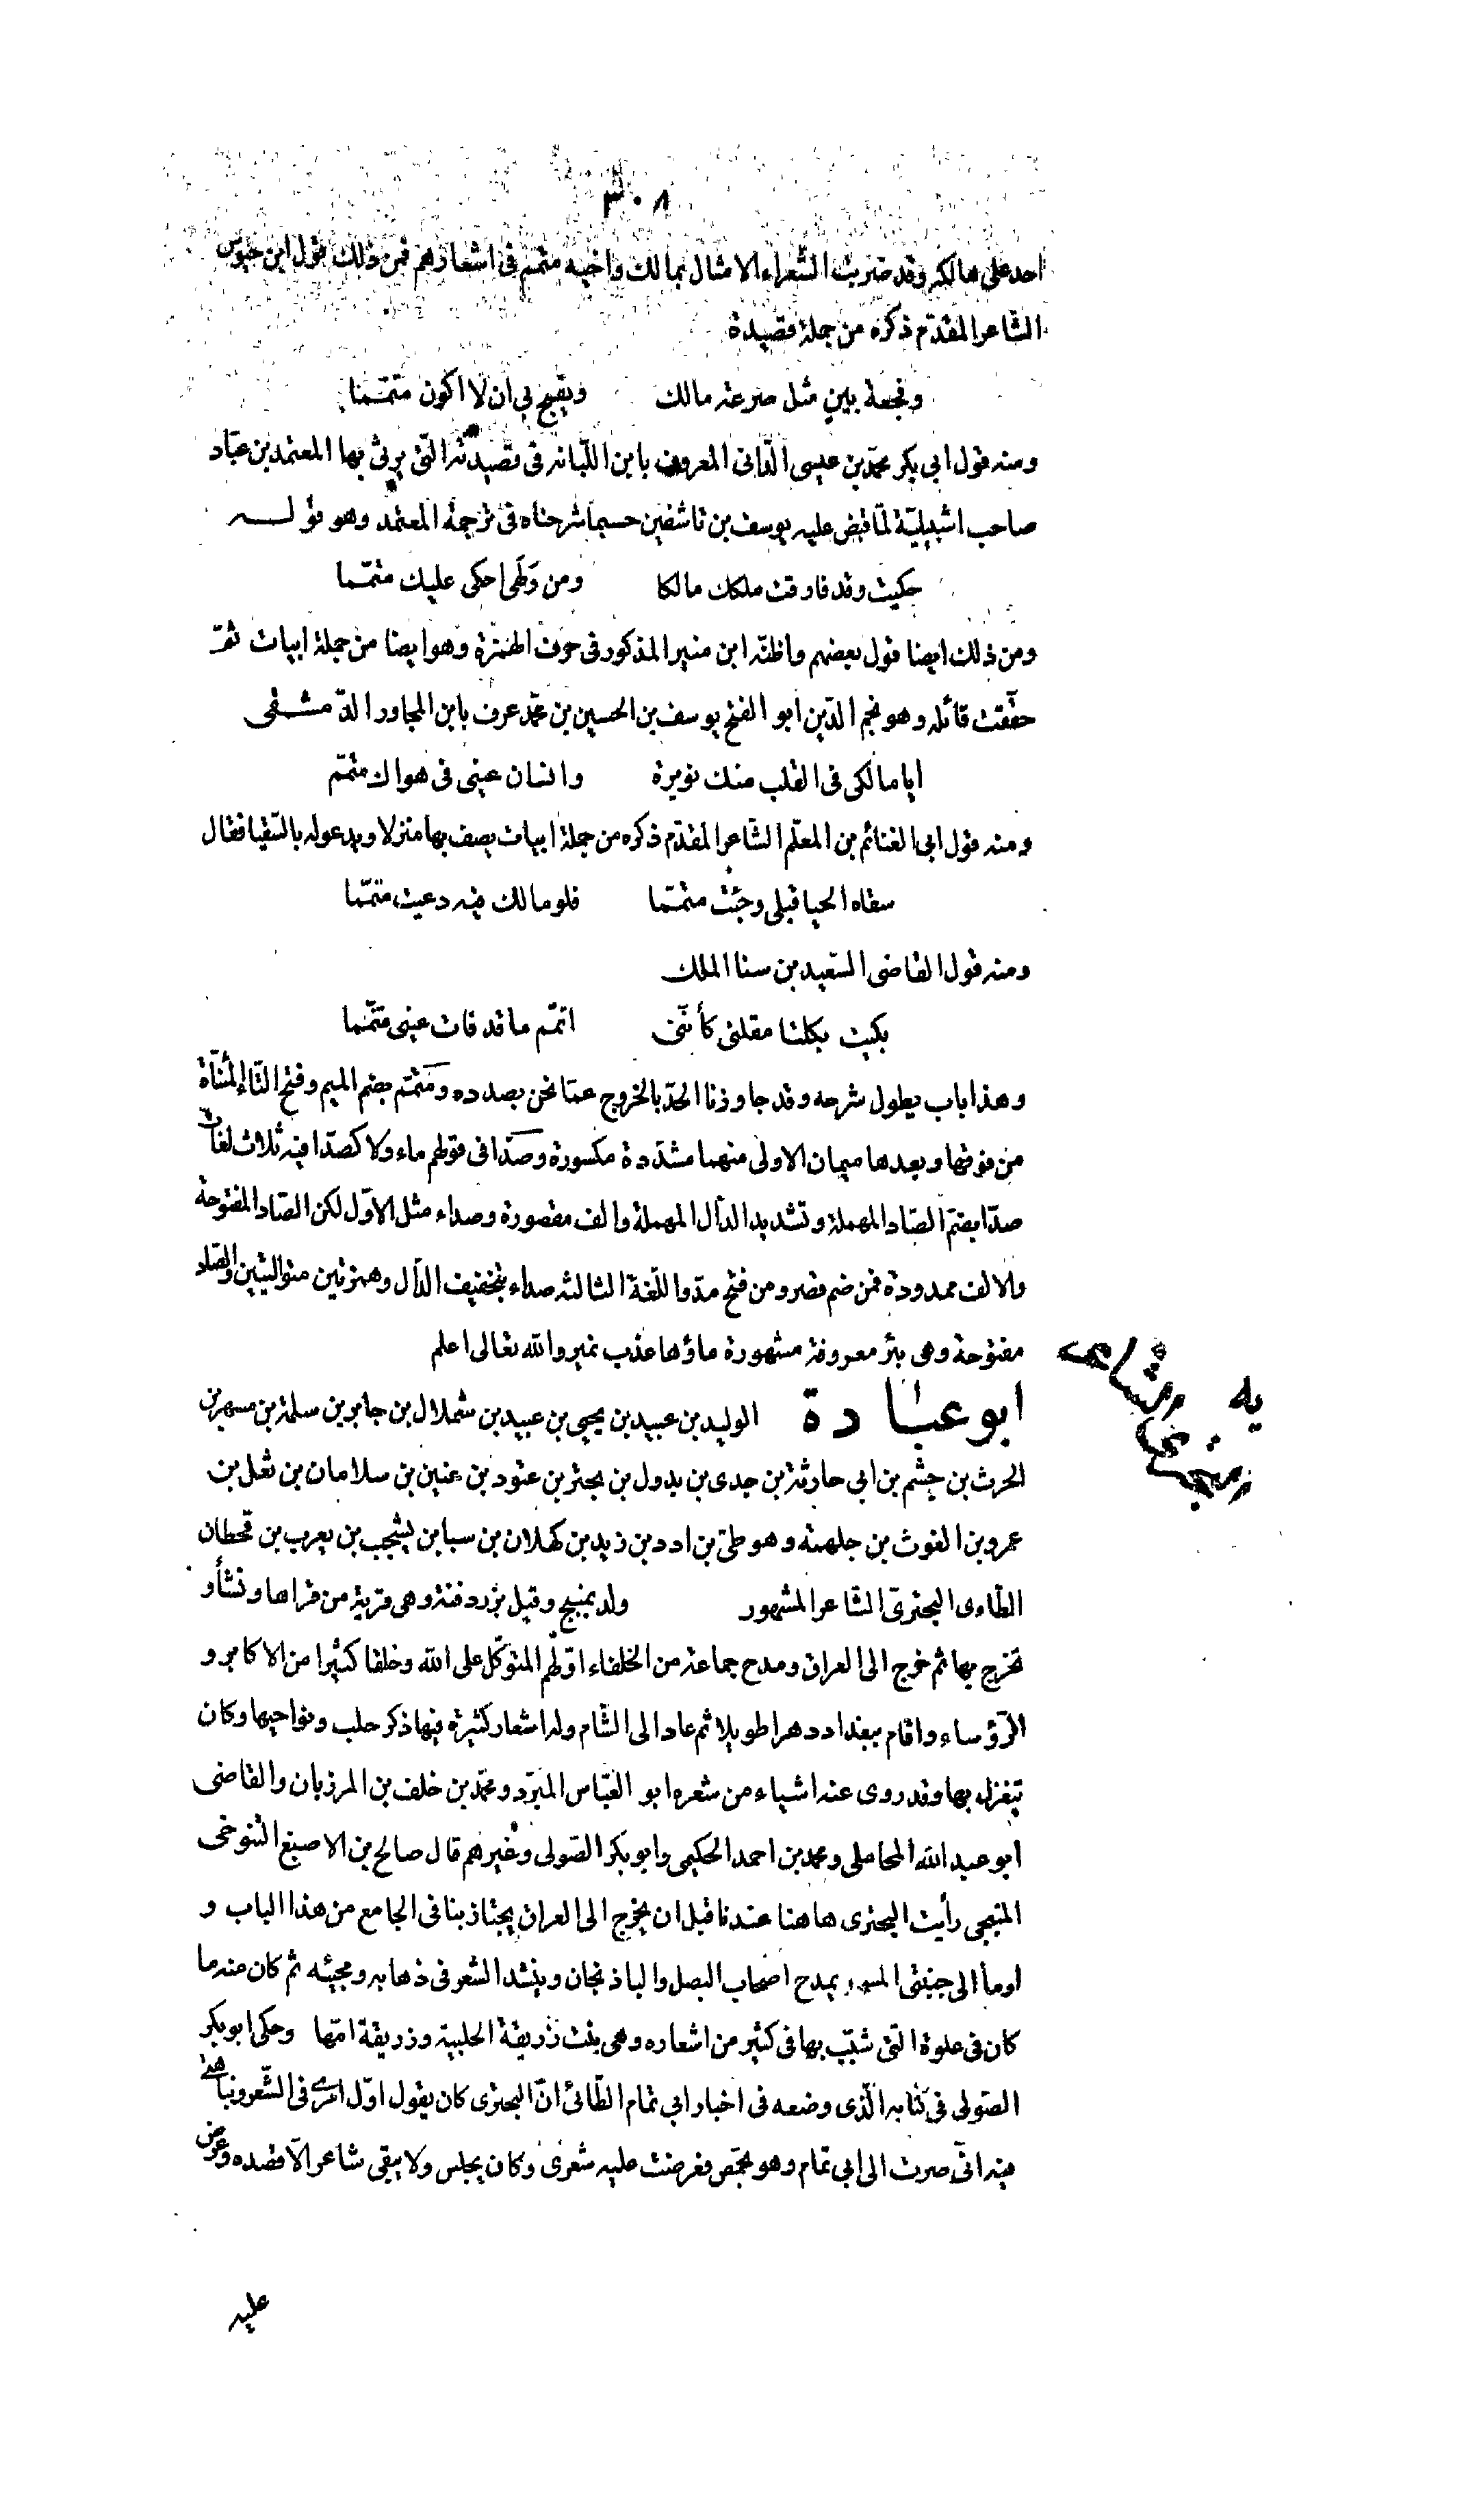 ٣٠٨
احد على هالكه وقد ضربت الشعراء الامثال بمالك واخيه متمم فى اشعارهم فمن ذلك قول ابن حيوس
الشاعر المقدّم ذكره من جملة قصيدة
وفجعة بين مثل صرعة مالك ويقبح بى ان لا اكون متمّما
ومنه قول ابى بكر محمّد بن عيسى الدّانى المعروف بابن اللّبانه فى قصيدته التى يرثى بها المعتمد بن عبّاد
صاحب اشبيليّة لمّا قبض عليه يوسف بن تاشفين حسبما شرحناه فى ترجمة المعتمد وهو قوله
حكيت وقد فارقت ملكك مالكا ومن وَلَهى احكى عليك متمّما
ومن ذلك ايضا قول بعضهم واظنّه ابن منير المذكور فى حرف الهمزة وهو ايضا من جملة ابيات ثمّ
حقّقت قائله وهو نجم الدّين ابو الفتح يوسف بن الحسين بن محمّد عرف بابن المجاور الدّمشقى
ايا مالكى فى القلب منك نويرة وانسان عينى فى هواك متمّم
ومنه قول ابى الغنائم بن المعلّم الشّاعر المقدّم ذكره من جملة ابيات يصف بها منزلا ويدعو له بالسّقيا فقال
سقاه الحيا قبلى وجئت متمّما فلو مالك فيه دعيت متمّما
ومنه قول القاضى السّعيد بن سنا الملك
بكيت بكلتا مقلتى كأنّنى اتمّم ما قد فات عينى متمّما
وهذا باب يطول شرحه وقد جاوزنا الحدّ بالخروج عمّا نحن بصدده ومتمّم بضم الميم وفتح التّاء المثنّاة
من فوقها وبعدها ميمان الاولى منهما مشدّدة مكسورة وصدّا فى قولهم ماء ولا كصدّا فيه ثلاث لغات
صدّا بضمّ الصّاد المهملة وتشديد الدّال المهملة والف مقصورة وصداء مثل الاوّل لكن الصّاد المفتوحة
والالف ممدودة فمن ضم قصر ومن فتح مدّ واللّغة الثالثه صداء بتخفيف الدّال وهمزتين متواليتين والصّاد
مفتوحة وهى بئر معروفة مشهورة ماؤها عذب نمير والله تعالى اعلم
ابو عبادة الوليد بن عبيد بن يحيى بن عبيد بن شملال بن جابر بن سلمة بن مسهر بن
الحرث بن جشم بن ابى حارثة بن جدى بن بدول بن بحتر بن عتود بن عنين بن سلامان بن ثعل بن
عمرو بن الغوث بن جلهمة وهو طىّ بن ادد بن زيد بن كهلان بن سبا بن يشجب بن يعرب بن قحطان
الطاءى البحترىّ الشّاعر المشهور ولد بمنبج وقيل بزردفنة وهى قرية من قراها ونشأ و
تخرج بها ثم خرج الى العراق ومدح جماعة من الخلفاء اوّلهم المتوكّل على الله وخلقا كثيرا من الاكابر و
الرّؤساء واقام ببغداد دهرا طويلا ثم عاد الى الشّام وله اشعار كثيرة فيها ذكر حلب ونواحيها وكان
يتغزل بها وقد روى عنه اشياء من شعره ابو العبّاس المبرّد ومحمّد بن خلف بن المرزبان والقاضى
ابو عبد الله المحاملى ومحمد بن احمد الحكيمى وابو بكر الصّولى وغيرهم قال صالح بن الاصبغ التنوخى
المنبجى رأيت البحترى هاهنا عندنا قبل ان يخرج الى العراق يجتاز بنا فى الجامع من هذا الباب و
اومأ الى جنبتى المسجد يمدح اصحاب البصل والباذنجان وينشد الشعر فى ذهابه ومجيئه ثم كان منه ما
كان فى علوة التى شبّب بها فى كثير من اشعاره وهى بنت زريقة الحلبية وزريقة امّها وحكى ابو بكر
الصّولى فى كتابه الّذى وضعه فى اخبار ابى تمام الطّائى انّ البحترى كان يقول اوّل امرى فى الشّعر ونباهتى
فيه انّى صرت الى ابى تمّام وهو بحمّص فعرضت عليه شعرى وكان يجلس ولا يبقى شاعر الّا قصده وعرض
عليه
البحترى الشاعر